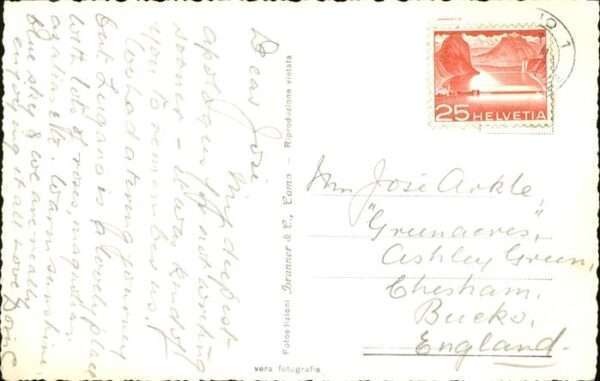 Dear José
My deepest
apologies for not writing
sooner - it was kind of
you to remember us.
We had a tiring journey
but Lugano is a lovely place
with lots of roses, magnolias,
warm sunshine,
blue sky & we are really
enjoying it all. Love Doris
Fotoedizioni Brunner & C., Como - Riproduzione vietata
vera fotografia
25 HELVETIA
1
José Arkle,
"Greenacres",
Ashley Green,
Chesham,
Bucks,
England.